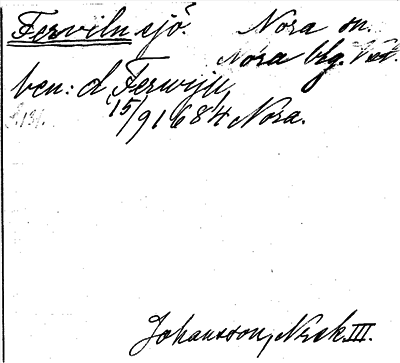 Ferviln sjö. Nora sn.
Nora bg. Väst.
ben: d. Ferwijn,
15/9 1684 Nora.
Johansson, Nzsk. III.